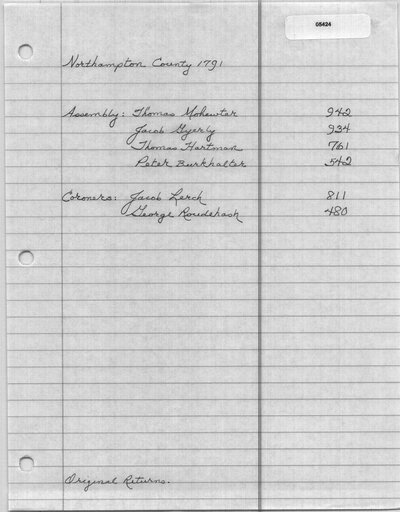 05424
Northampton County 1791
Assembly: Thomas Mohewter 942
Jacob Gyerly 934
Thomas Hartman 761
Peter Burkhalter 542
Coroners: Jacob Lerch 811
George Roudehash 480
Original Returns.